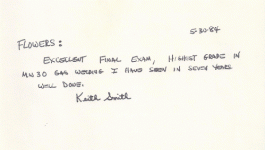 5-30-84
FLOWERS:
EXCELLENT FINAL EXAM, HIGHEST GRADE IN
MW30 GAS WELDING I HAVE SEEN IN SEVEN YEARS
WELL DONE.
Keith Smith